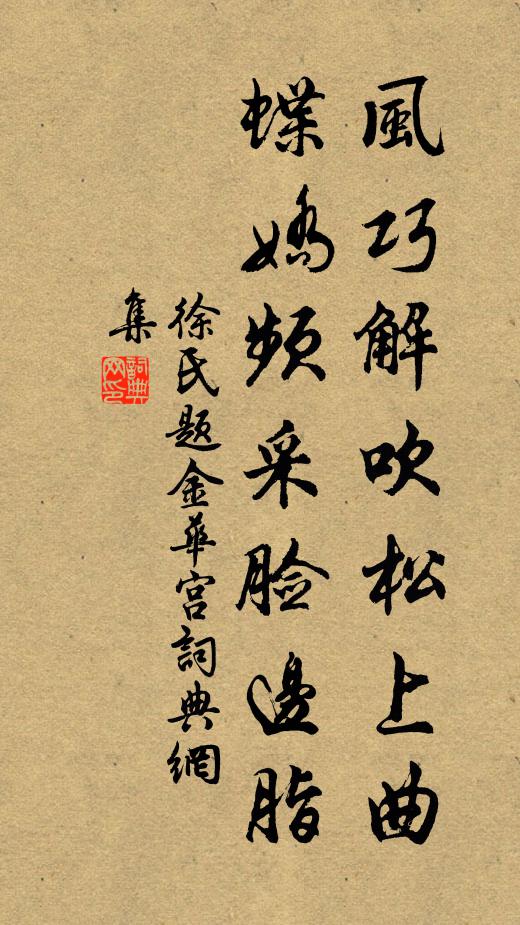 風巧解吹松上曲
蝶嬌頻采脸邊脂
徐氏題金華宫詞典網
集
詞典
网印